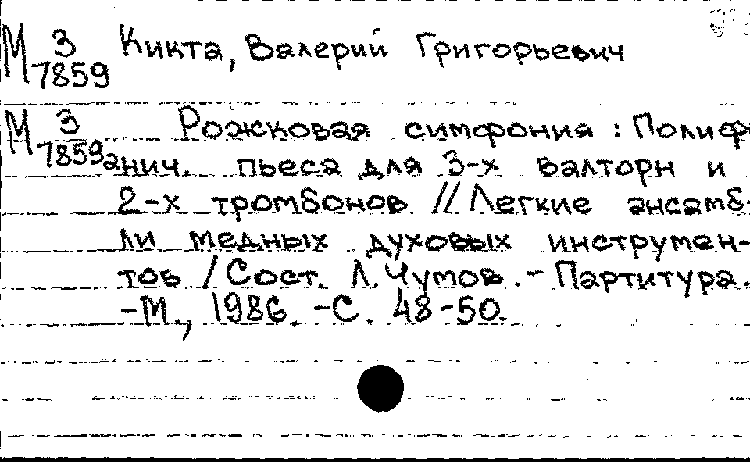 М 3 Кикта, Валерий Григорьевич
7859
М 3 Рожковая симфония : Полиф
7859 анич. пьеса для 3-х валторн и
2-х тромбонов // Легкие ансамб-
ли медных духовых инструмен-
тов / Сост. Л. Чумов. - Партитура.
-М., 1986. -С. 48-50.